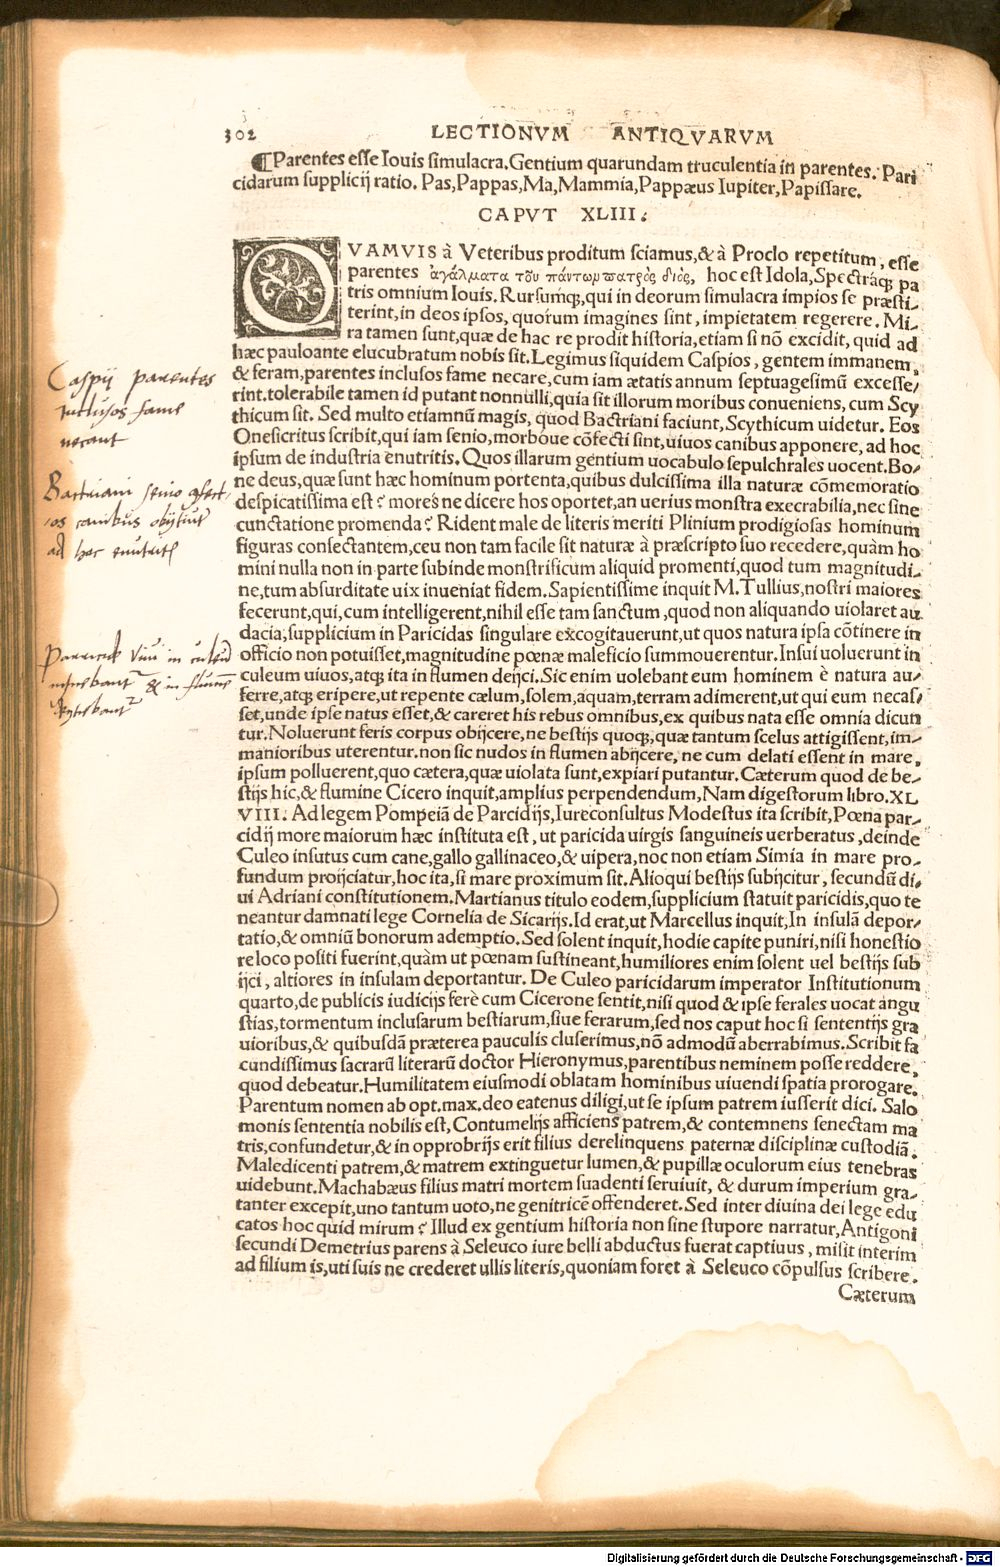 302 LECTIONVM ANTIQVARVM
¶Parentes esse Iouis simulacra. Gentium quarundam truculentia in parentes. Pari
cidarum supplicij ratio. Pas, Pappas, Ma, Mammia, Pappæus Iupiter, Papissare.
CAPVT XLIII.
QVAMVIS à Veteribus proditum sciamus, & à Proclo repetitum, esse
parentes ἀγάλματα τοῦ πάντωμ πατρὸς διὸς, hoc est Idola, Spectráq; pa
tris omnium Iouis. Rursumq;, qui in deorum simulacra impios se præsti-
terint, in deos ipsos, quorum imagines sint, impietatem regerere. Mi-
ra tamen sunt, quæ de hac re prodit historia, etiam si nō excidit, quid ad
hæc pauloante elucubratum nobis sit. Legimus siquidem Caspios, gentem immanem,
& feram, parentes inclusos fame necare, cum iam ætatis annum septuagesimū excesse-
rint. tolerabile tamen id putant nonnulli, quia sit illorum moribus conueniens, cum Scy
thicum sit. Sed multo etiamnū magis, quod Bactriani faciunt, Scythicum uidetur. Eos
Onesicritus scribit, qui iam senio, morbóue cōfecti sint, uiuos canibus apponere, ad hoc
ipsum de industria enutritis. Quos illarum gentium uocabulo sepulchrales uocent. Bo-
ne deus, quæ sunt hæc hominum portenta, quibus dulcissima illa naturæ cōmemoratio
despicatissima est? mores ne dicere hos oportet, an uerius monstra execrabilia, nec sine
cunctatione promenda? Rident male de literis meriti Plinium prodigiosas hominum
figuras consectantem, ceu non tam facile sit naturæ à præscripto suo recedere, quàm ho
mini nulla non in parte subinde monstrificum aliquid promenti, quod tum magnitudi-
ne, tum absurditate uix inueniat fidem. Sapientissime inquit M. Tullius, nostri maiores
fecerunt, qui, cum intelligerent, nihil esse tam sanctum, quod non aliquando uiolaret au
dacia, supplicium in Paricidas singulare excogitauerunt, ut quos natura ipsa cōtinere in
officio non potuisset, magnitudine pœnæ maleficio summouerentur. Insui uoluerunt in
culeum uiuos, atq; ita in flumen deijci. Sic enim uolebant eum hominem è natura au-
ferre, atq; eripere, ut repente cælum, solem, aquam, terram adimerent, ut qui eum necas-
set, unde ipse natus esset, & careret his rebus omnibus, ex quibus nata esse omnia dicun
tur. Noluerunt feris corpus obijcere, ne bestijs quoq;, quæ tantum scelus attigissent, im-
manioribus uterentur. non sic nudos in flumen abijcere, ne cum delati essent in mare,
ipsum polluerent, quo cætera, quæ uiolata sunt, expiari putantur. Cæterum quod de be-
stijs hic, & flumine Cicero inquit, amplius perpendendum, Nam digestorum libro. XL
VIII. Ad legem Pompeiā de Parcidijs, Iureconsultus Modestus ita scribit, Pœna par-
cidij more maiorum hæc instituta est, ut paricida uirgis sanguineis uerberatus, deinde
Culeo insutus cum cane, gallo gallinaceo, & uipera, noc non etiam Simia in mare pro-
fundum proijciatur, hoc ita, si mare proximum sit. Alioqui bestijs subijcitur, secundū di-
ui Adriani constitutionem. Martianus titulo eodem, supplicium statuit paricidis, quo te
neantur damnati lege Cornelia de Sicarijs. Id erat, ut Marcellus inquit, In insulā depor-
tatio, & omniū bonorum ademptio. Sed solent inquit, hodie capite puniri, nisi honestio
re loco positi fuerint, quàm ut pœnam sustineant, humiliores enim solent uel bestijs sub
ijci, altiores in insulam deportantur. De Culeo paricidarum imperator Institutionum
quarto, de publicis iudicijs ferè cum Cicerone sentit, nisi quod & ipse ferales uocat angu
stias, tormentum inclusarum bestiarum, siue ferarum, sed nos caput hoc si sententijs gra
uioribus, & quibusdā præterea pauculis cluserimus, nō admodū aberrabimus. Scribit fa
cundissimus sacrarū literarū doctor Hieronymus, parentibus neminem posse reddere,
quod debeatur. Humilitatem eiusmodi oblatam hominibus uiuendi spatia prorogare.
Parentum nomen ab opt. max. deo eatenus diligi, ut se ipsum patrem iusserit dici. Salo
monis sententia nobilis est, Contumelijs afficiens patrem, & contemnens senectam ma
tris, confundetur, & in opprobrijs erit filius derelinquens paternæ disciplinæ custodiā.
Maledicenti patrem, & matrem extinguetur lumen, & pupillæ oculorum eius tenebras
uidebunt. Machabæus filius matri mortem suadenti seruiuit, & durum imperium gra-
tanter excepit, uno tantum uoto, ne genitricē offenderet. Sed inter diuina dei lege edu
catos hoc quid mirum? Illud ex gentium historia non sine stupore narratur, Antigoni
secundi Demetrius parens à Seleuco iure belli abductus fuerat captiuus, misit interim
ad filium is, uti suis ne crederet ullis literis, quoniam foret à Seleuco cōpulsus scribere.
Cæterum
Caspij parentes
inclusos fame
necant
Bactriani senio
canibus
ad hoc
viui in
& in
Digitalisierung gefördert durch die Deutsche Forschungsgemeinschaft - DFG